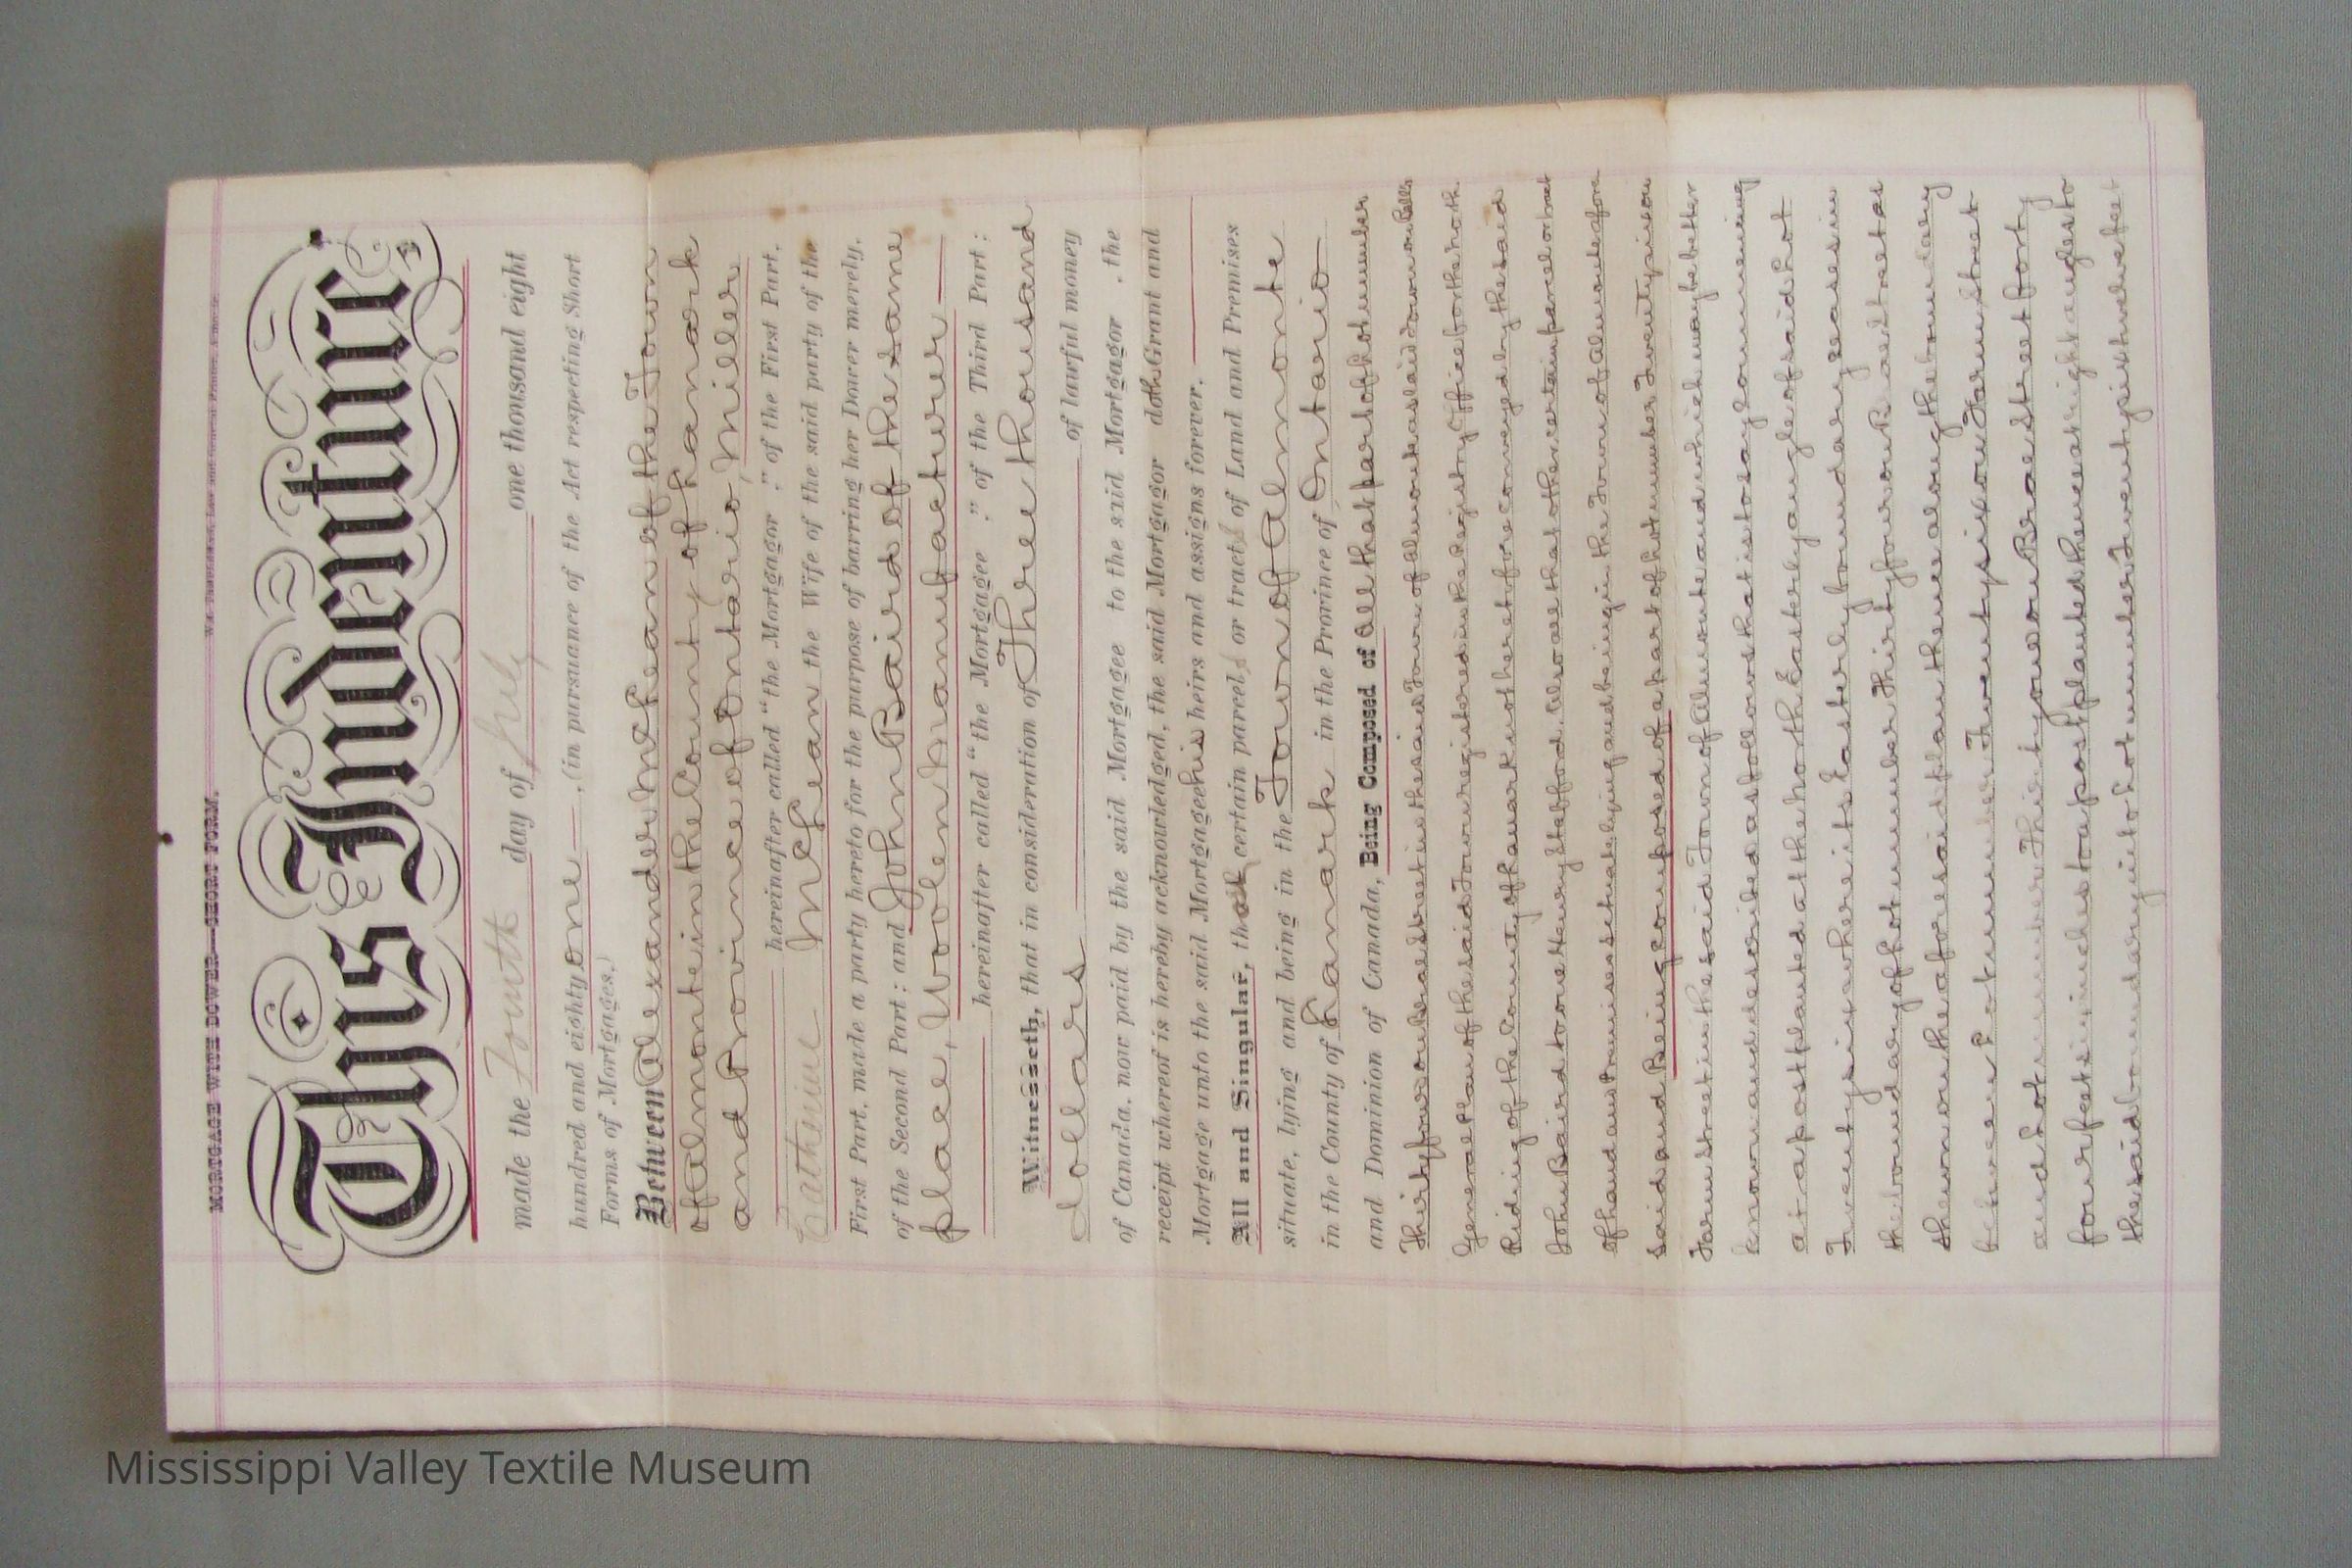 MORTGAGE WITH DOWER—SHORT FORM.
This Indenture
made the Fourth day of July one thousand eight
hundred and eighty one, (in pursuance of the Act respecting Short
Forms of Mortgages.)
Between Alexander McLean of the Town
of Almonte in the County of Lanark
and Province of Ontario, Miller
hereinafter called "the Mortgagor ," of the First Part.
Catherine McLean the Wife of the said party of the
First Part, made a party hereto for the purpose of barring her Dower merely,
of the Second Part; and John Baird of the same
place, Woolen Manufacturer
hereinafter called "the Mortgagee ," of the Third Part:
Witnesseth, that in consideration of Three thousand
dollars of lawful money
of Canada, now paid by the said Mortgagee to the said Mortgagor , the
receipt whereof is hereby acknowledged, the said Mortgagor doth Grant and
Mortgage unto the said Mortgagee his heirs and assigns forever,
All and Singular, that certain parcel or tract of Land and Premises
situate, lying and being in the Town of Almonte
in the County of Lanark in the Province of Ontario
and Dominion of Canada, Being Composed of All that part of Lot number
Thirty four on Brae Street in the said Town of Almonte as laid down on Bells
General Plan of the said Town registered in the Registry Office for the North
Riding of the County of Lanark as heretofore conveyed by the said
John Baird to one Henry Stafford. Also all that other certain parcel or tract
of land and Premises situate lying and being in the Town of Almonte afore
said and Being composed of a part of Lot number Twenty six on
Farm Street in the said Town of Almonte and which may be better
known and described as follows that is to say Commencing
at a post planted at the North Easterly angle of said Lot
Twenty six where its Easterly boundary leaves in
the boundary of Lot number Thirty four on Brae Street as
shewn on the aforesaid plan thence along the boundary
between Lot number Twenty six on Farm Street
and Lot number Thirty four on Brae Street forty
four feet six inches to a post planted thence at right angles to
the said boundary into Lot number Twenty six twelve feet
Mississippi Valley Textile Museum